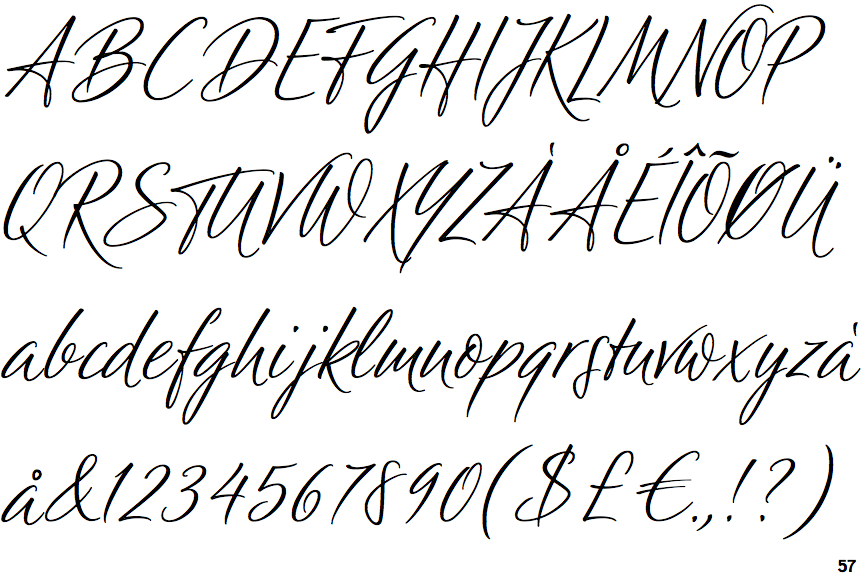 ABCDEFGHIJKLMNOP
QRSTUVWXYZÀÅÉÎÕØÜ
abcdefghijklmnopqrstuvwxyzà
å&1234567890($£€.,!?)
57